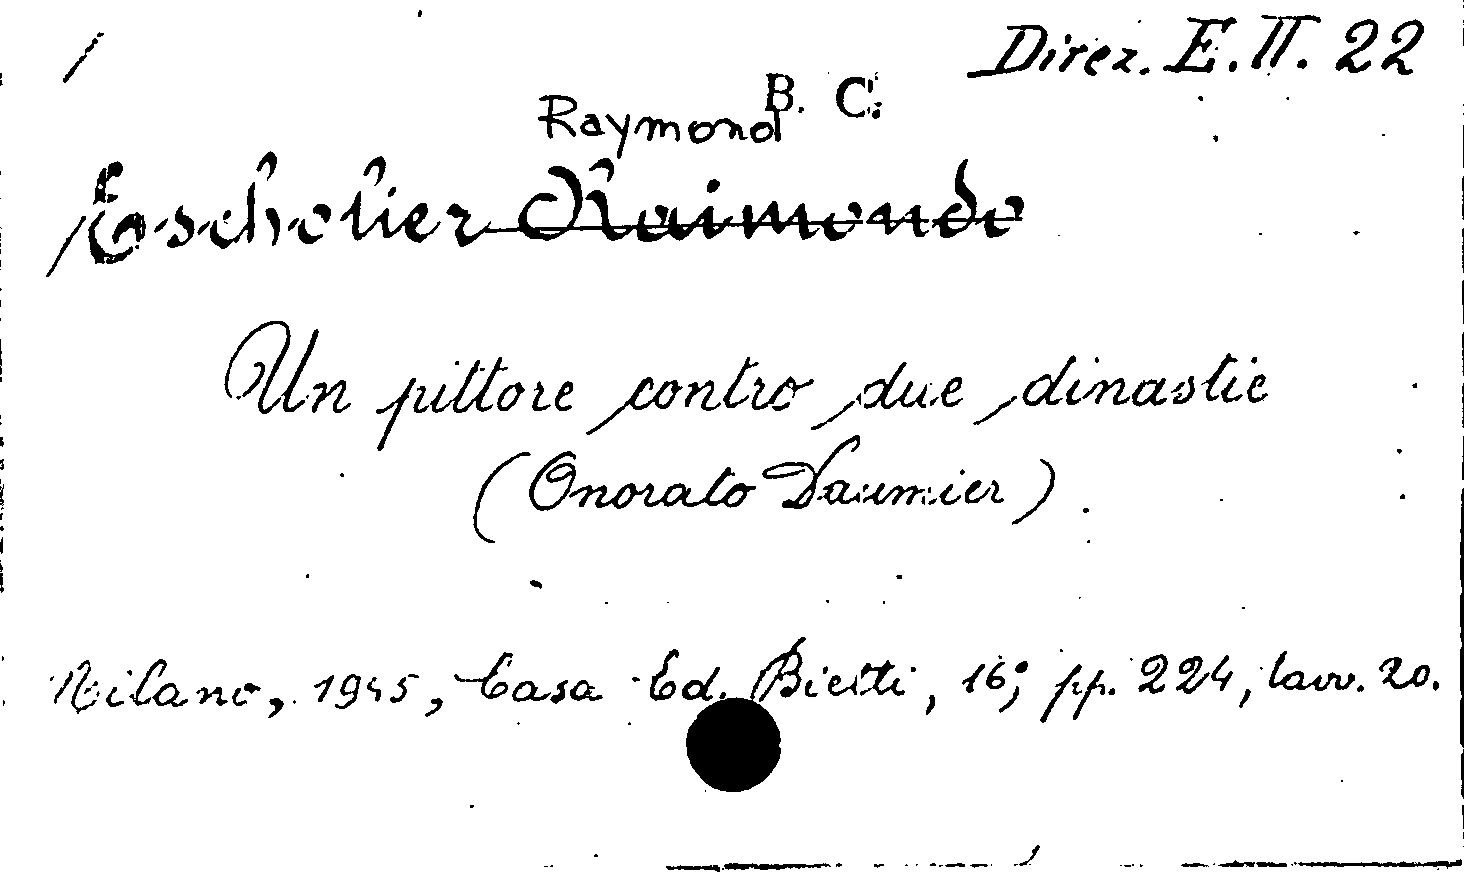 Direz. E. II. 22
B. C.
Raymond
Escholier Raimondo
Un pittore contro due dinastie
(Onorato Daumier).
Milano, 1945, Casa Ed. Bietti, 16°; pp. 224, tavv. 20.